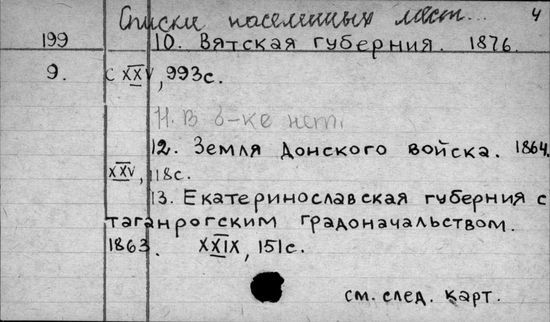 Списки населенных мест... 4
199 10. Вятская губерния. 1876.
9. С XXV, 993с.
11. В б-ке нет.
12. Земля Донского войска. 1864.
XXV, 118с.
13. Екатеринославская губерния с
таганрогским градоначальством.
1863. XXIX, 151с.
см. след. карт.